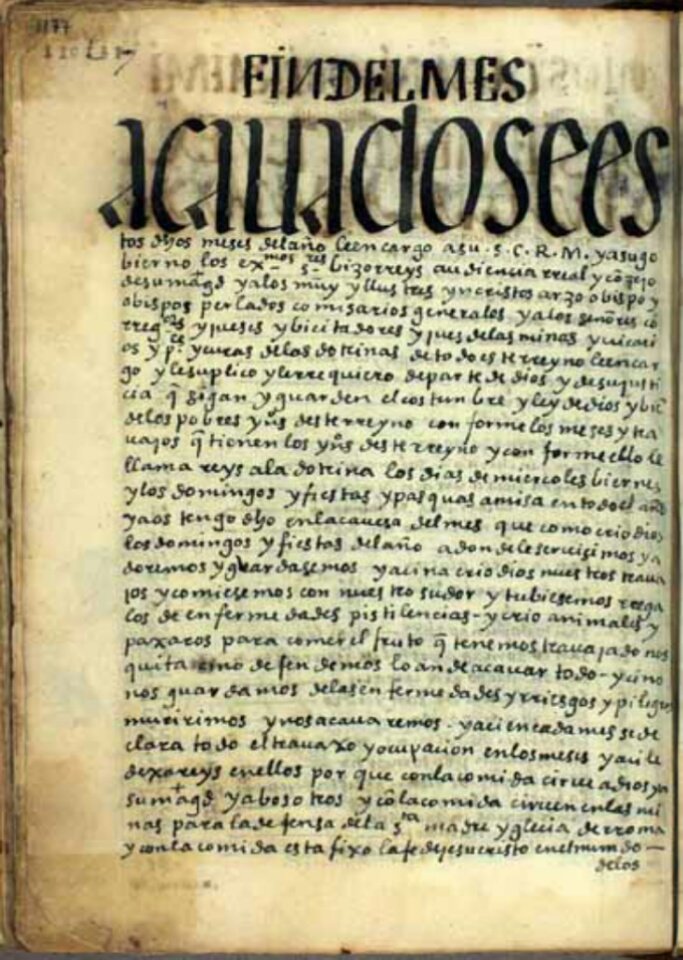 1177
FIN DEL MES
acauado se es
tos dhos meses del año le encargo a su .S.C.R.M. y a su go
bierno los exmos sres bizorreys audiencia rreal y cōzejo
de su magd y a los muy yllustres yncristos arzoobispo y
obispos perlados comisarios generalos y a los señores co
rregores y jueses y bicitadores y jues de las minas y uicari
os y pes y curas de las dotrinas de todo este rreyno le encar
go y le suplico y le rrequiero de parte de dios y de su justi
cia q̄ cigan y guarden el costunbre y ley de dios y biē
de los pobres yns deste rreyno conforme los meses y tra
uajos q̄ tienen los yns deste rreyno y conforme ello le
llamareys a la dotrina los dias de miercoles biernes
y los domingos y fiestas y pasquas a misa en todo el año
ya os tengo dho en la cauesa del mes que como crio dios
los domingos y fiestas del año adonde le seruicimos y a
doremos y guardasemos y aci na crio dios nuestros traua
jos y comiesemos con nuestro sudor y tubiesemos rrega
los de enfermedades pistilencias - y crio animales y
paxaros para comer el fruto q̄ tenemos trauajado nos
quita cino defendemos lo an de acauar todo - y cino
nos guardamos de las enfermedades y rriesgos y piligros
muririmos y nos acauaremos . y aci en cada mes se de
clara todo el trauaxo y ocupacion en los meses y aci le
dexareys en ellos por que con la comida cirue a dios y a
su magd y a bosotros y cō la comida ciruen en las mi
nas para la defensa de la sta madre yglecia de rroma
y con la comida esta fixo la fe de jesucristo en el mundo —
de los